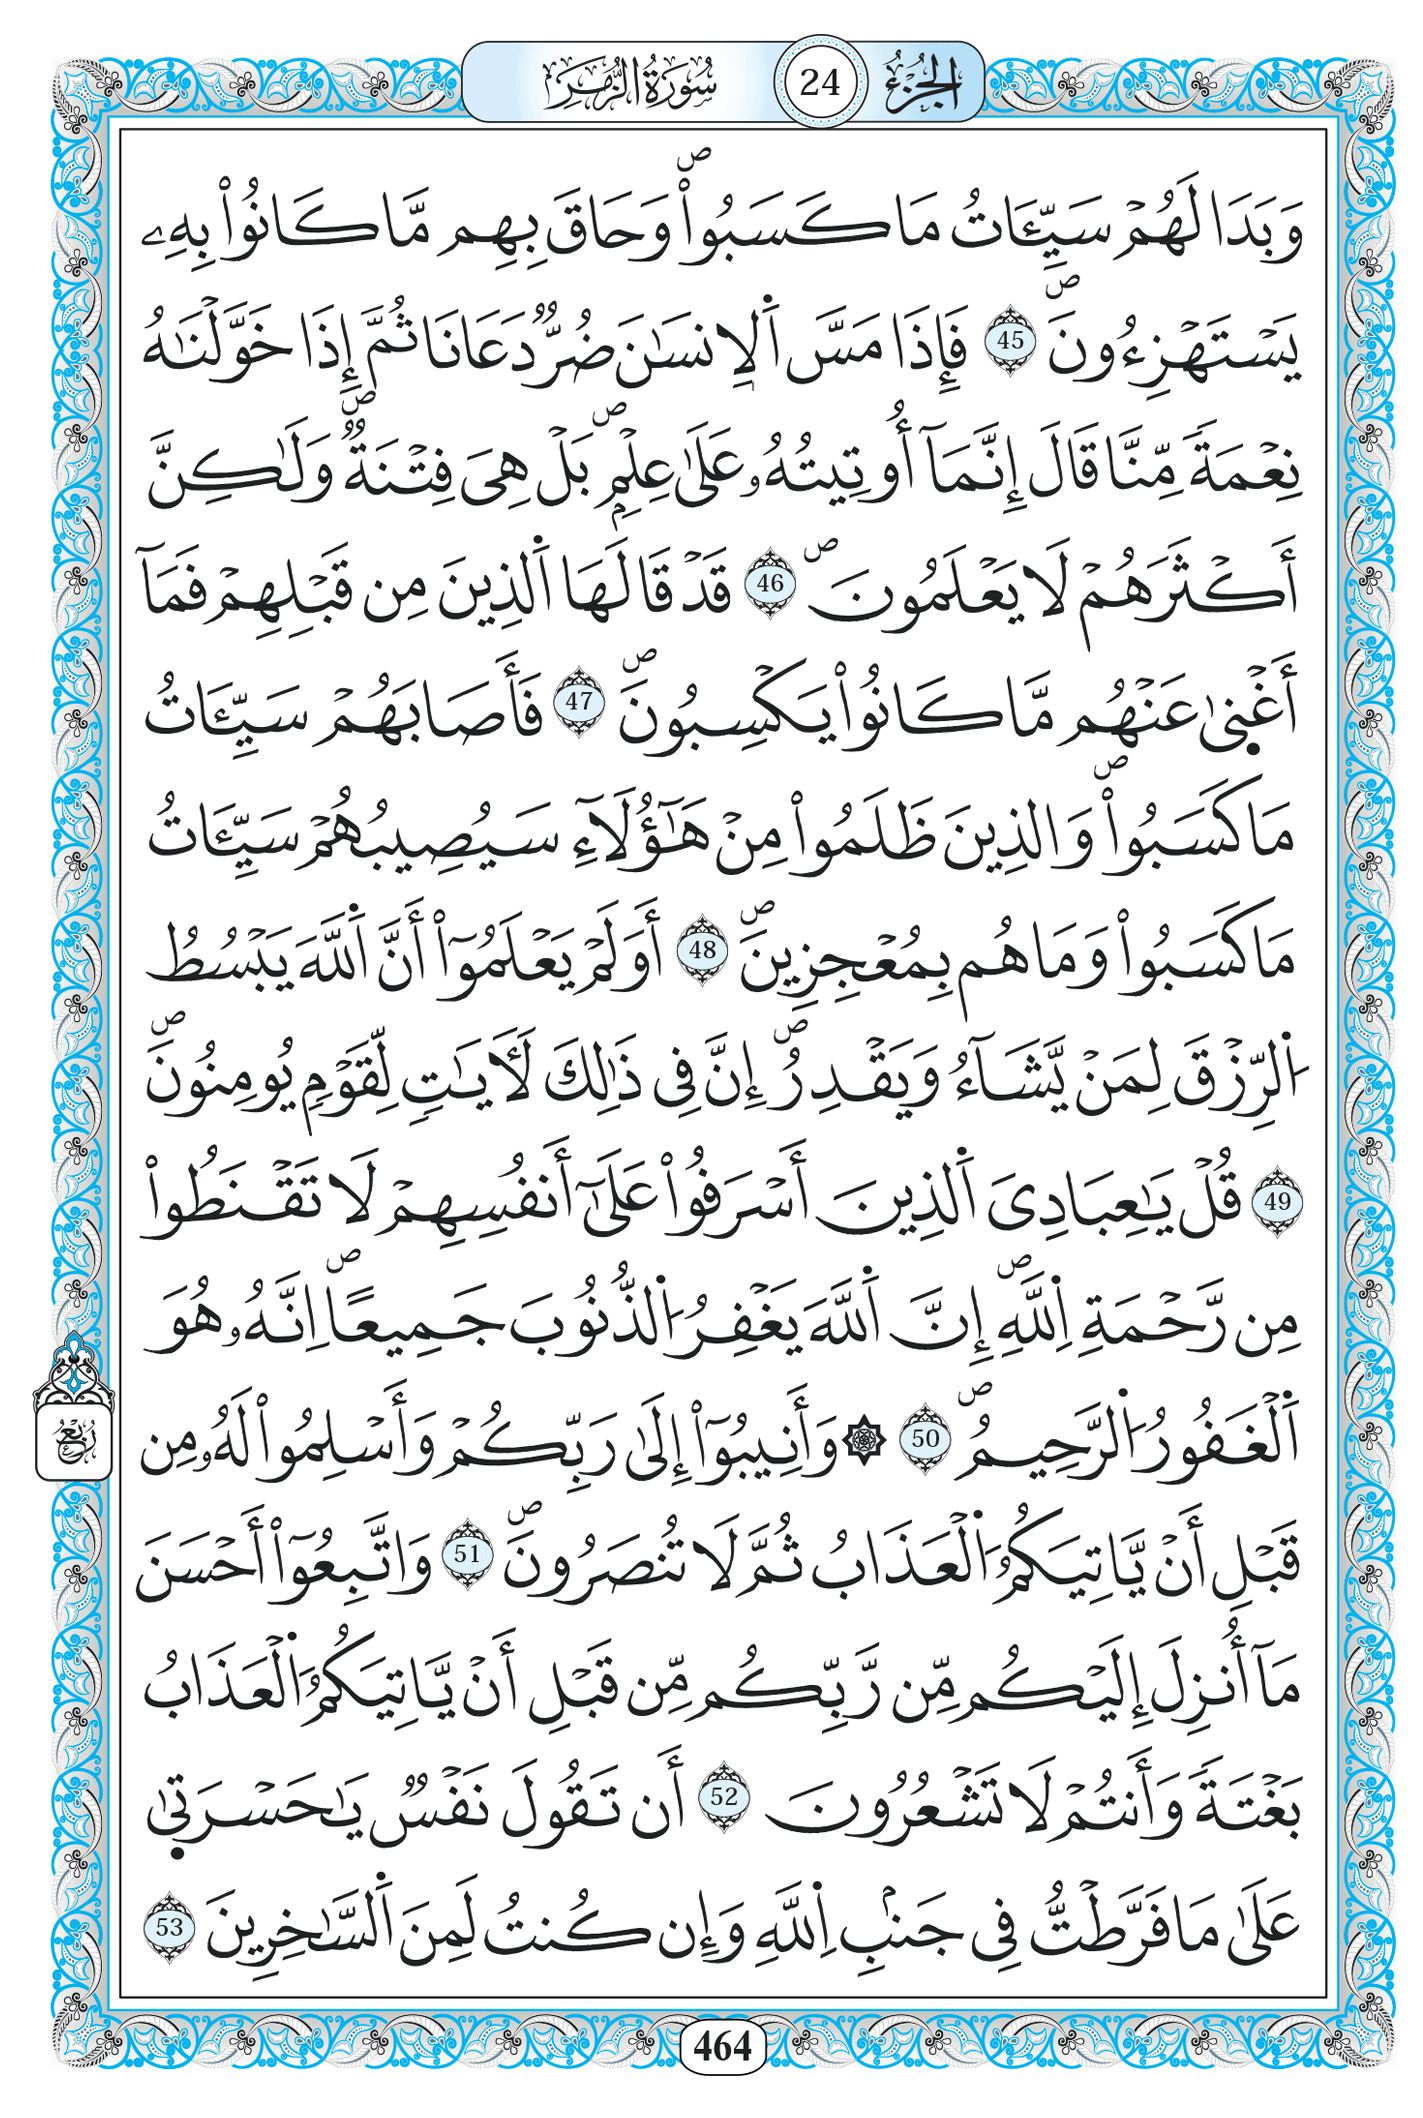 الجزء 24 سورة الزمر
وَبَدَا لَهُمْ سَيِّـَٔاتُ مَا كَسَبُواْۖ وَحَاقَ بِهِم مَّا كَانُواْ بِهِۦ
يَسْتَهْزِءُونَۖ 45 فَإِذَا مَسَّ اَ۬لِانسَٰنَ ضُرّٞ دَعَانَا ثُمَّ إِذَا خَوَّلْنَٰهُ
نِعْمَةٗ مِّنَّا قَالَ إِنَّمَآ أُوتِيتُهُۥ عَلَىٰ عِلْمِۢۖ بَلْ هِيَ فِتْنَةٞۖ وَلَٰكِنَّ
أَكْثَرَهُمْ لَا يَعْلَمُونَۖ 46 قَدْ قَالَهَا اَ۬لذِينَ مِن قَبْلِهِمْ فَمَآ
أَغْن۪ىٰ عَنْهُم مَّا كَانُواْ يَكْسِبُونَۖ 47 فَأَصَابَهُمْ سَيِّـَٔاتُ
مَا كَسَبُواْۖ وَالذِينَ ظَلَمُواْ مِنْ هَٰٓؤُلَآءِ سَيُصِيبُهُمْ سَيِّـَٔاتُ
مَا كَسَبُواْ وَمَا هُم بِمُعْجِزِينَۖ 48 أَوَلَمْ يَعْلَمُوٓاْ أَنَّ اَ۬للَّهَ يَبْسُطُ
اُ۬لرِّزْقَ لِمَنْ يَّشَآءُ وَيَقْدِرُۖ إِنَّ فِي ذَٰلِكَ لَأٓيَٰتٖ لِّقَوْمٖ يُومِنُونَۖ
49 قُلْ يَٰعِبَادِيَ اَ۬لذِينَ أَسْرَفُواْ عَلَىٰٓ أَنفُسِهِمْ لَا تَقْنَطُواْ
مِن رَّحْمَةِ اِ۬للَّهِۖ إِنَّ اَ۬للَّهَ يَغْفِرُ اُ۬لذُّنُوبَ جَمِيعاًۖ اِنَّهُۥ هُوَ
اَ۬لْغَفُورُ اُ۬لرَّحِيمُۖ 50 ۞ وَأَنِيبُوٓاْ إِلَىٰ رَبِّكُمْ وَأَسْلِمُواْ لَهُۥ مِن
قَبْلِ أَنْ يَّاتِيَكُمُ اُ۬لْعَذَابُ ثُمَّ لَا تُنصَرُونَۖ 51 وَاتَّبِعُوٓاْ أَحْسَنَ
مَآ أُنزِلَ إِلَيْكُم مِّن رَّبِّكُم مِّن قَبْلِ أَنْ يَّاتِيَكُمُ اُ۬لْعَذَابُ
بَغْتَةٗ وَأَنتُمْ لَا تَشْعُرُونَ 52 أَن تَقُولَ نَفْسٞ يَٰحَسْرَت۪ىٰ
عَلَىٰ مَا فَرَّطتُّ فِي جَنۢبِ اِ۬للَّهِ وَإِن كُنتُ لَمِنَ اَ۬لسَّٰخِرِينَ 53
ربع
464